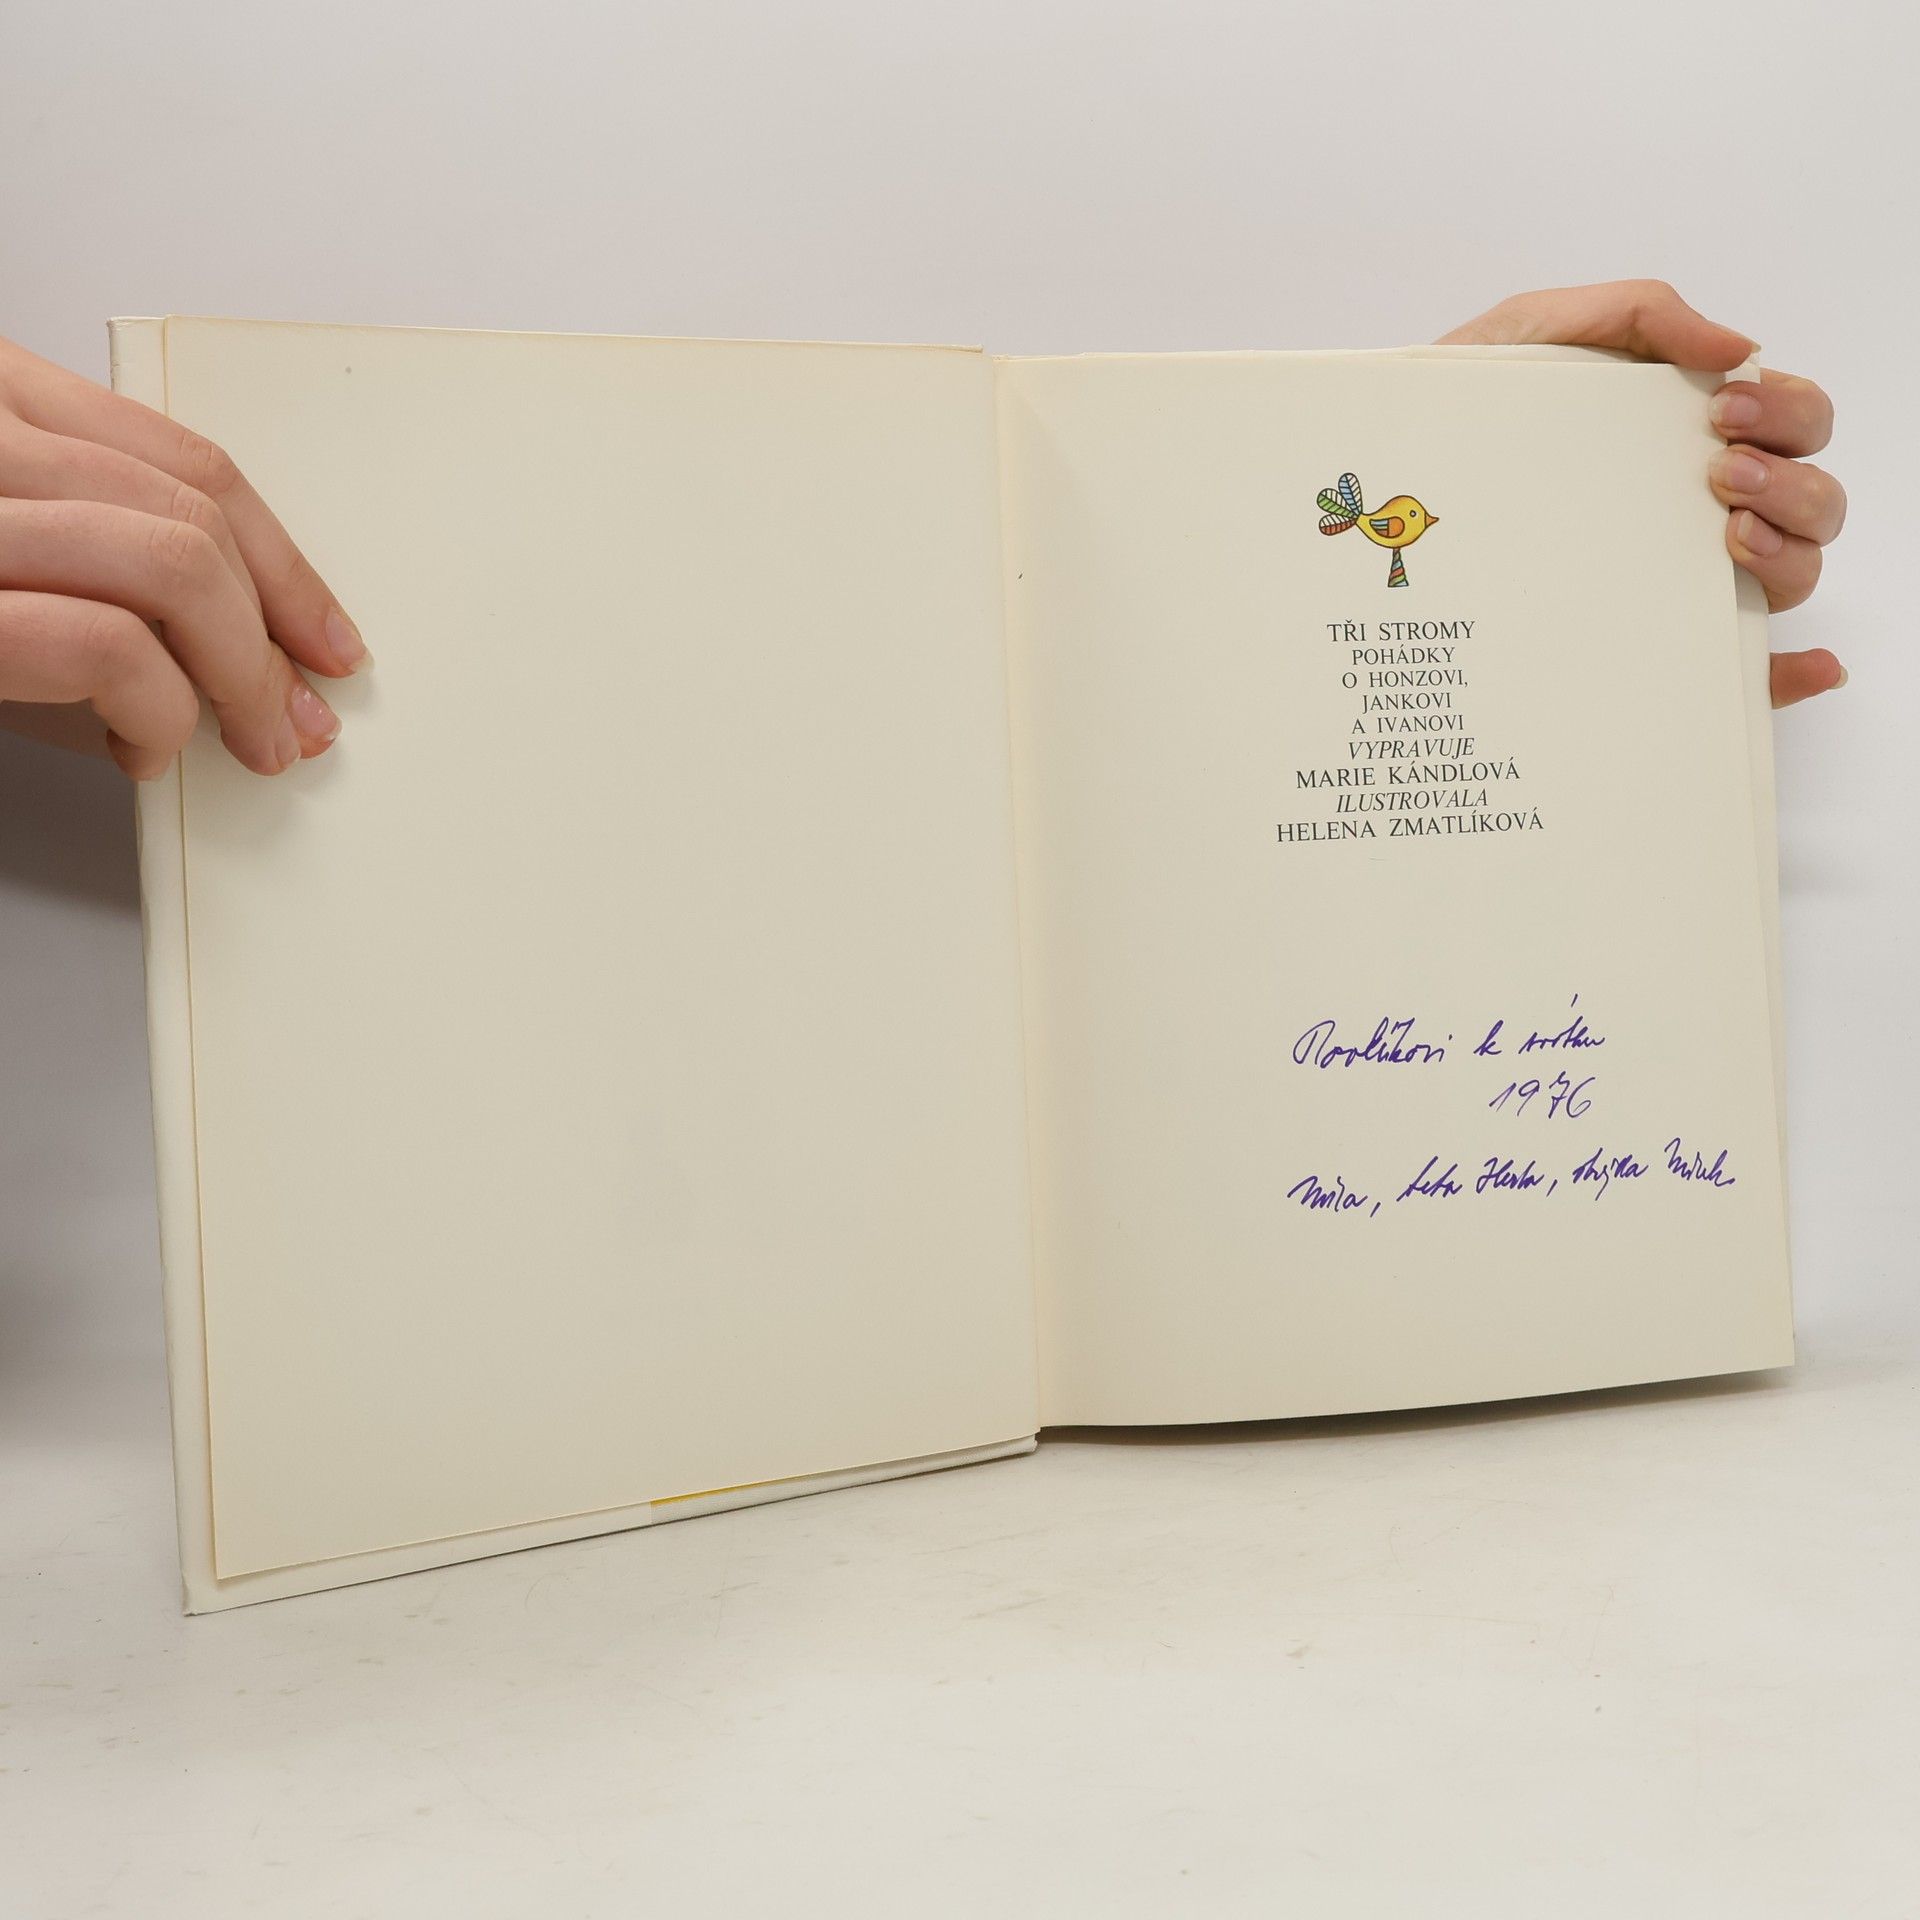 TŘI STROMY
POHÁDKY
O HONZOVI,
JANKOVI
A IVANOVI
VYPRAVUJE
MARIE KÁNDLOVÁ
ILUSTROVALA
HELENA ZMATLÍKOVÁ
k svátku
1976
teta